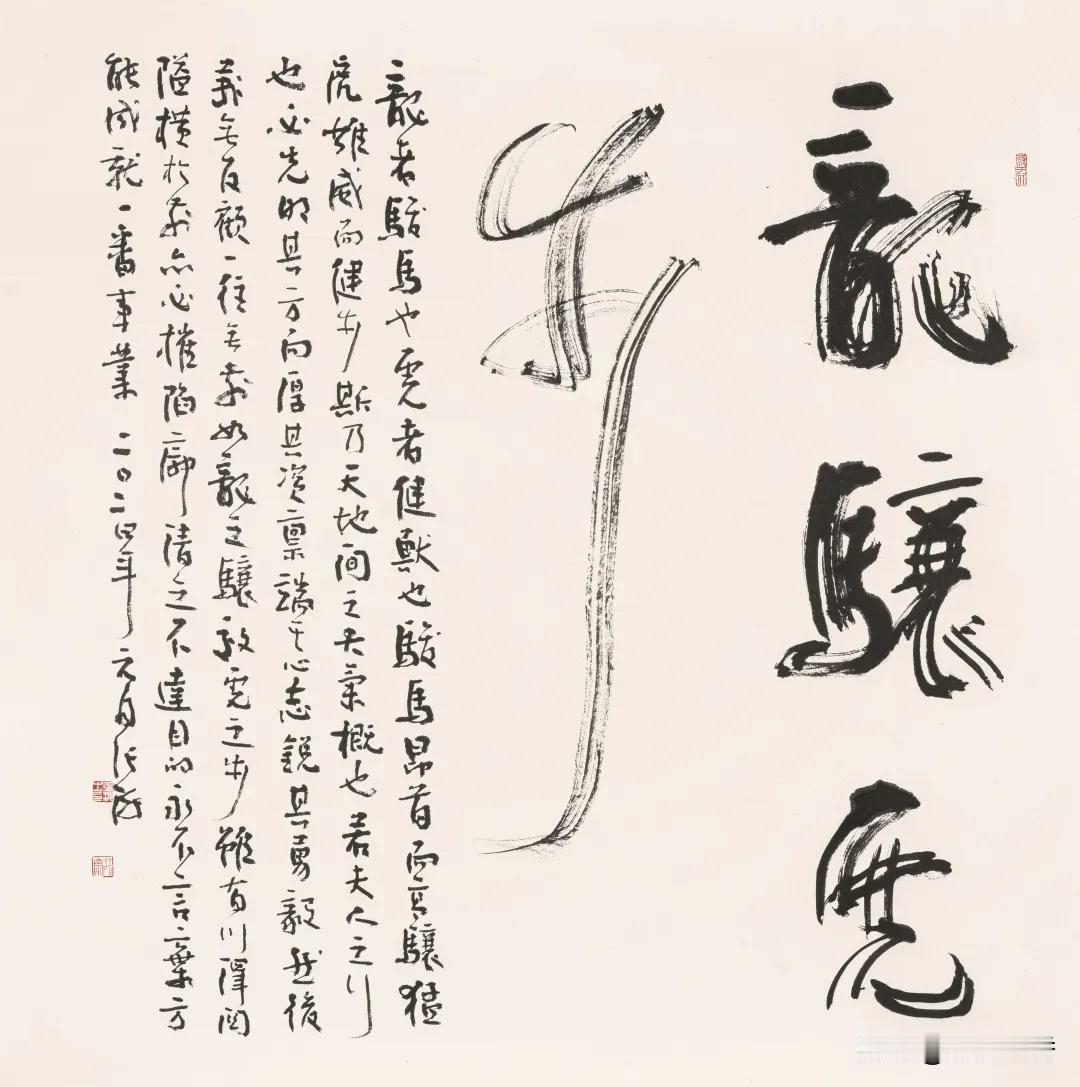 龍驤虎
步
龍者駿馬也虎者健獸也駿馬昂首而高驤猛
虎雄威而健步斯乃天地間之大氣概也若夫人之行
也必先明其方向厚其資稟端其心志銳其勇毅然後
義無反顧一往無前如龍之驤效虎之步雖有川關
隘橫於前亦必摧陷廓清之不達目的永不言棄方
能成就一番事業 二〇二四年元月張